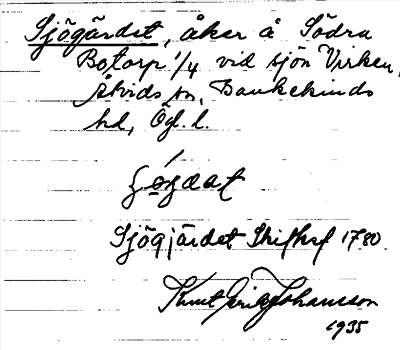 Sjögärdet, åker å Södra
Botorp 1/4 vid sjön Virken,
Åtvids sn, Bankekinds
hd, Ög. l.
Sjögjärdet Skifthf 1780
Knut Erik Johansson
1935